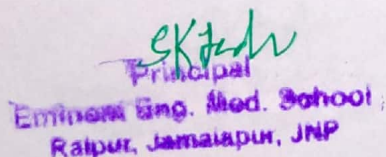 Principal
Eminent Eng. Med. School
Raipur, Jamalapur, JNP